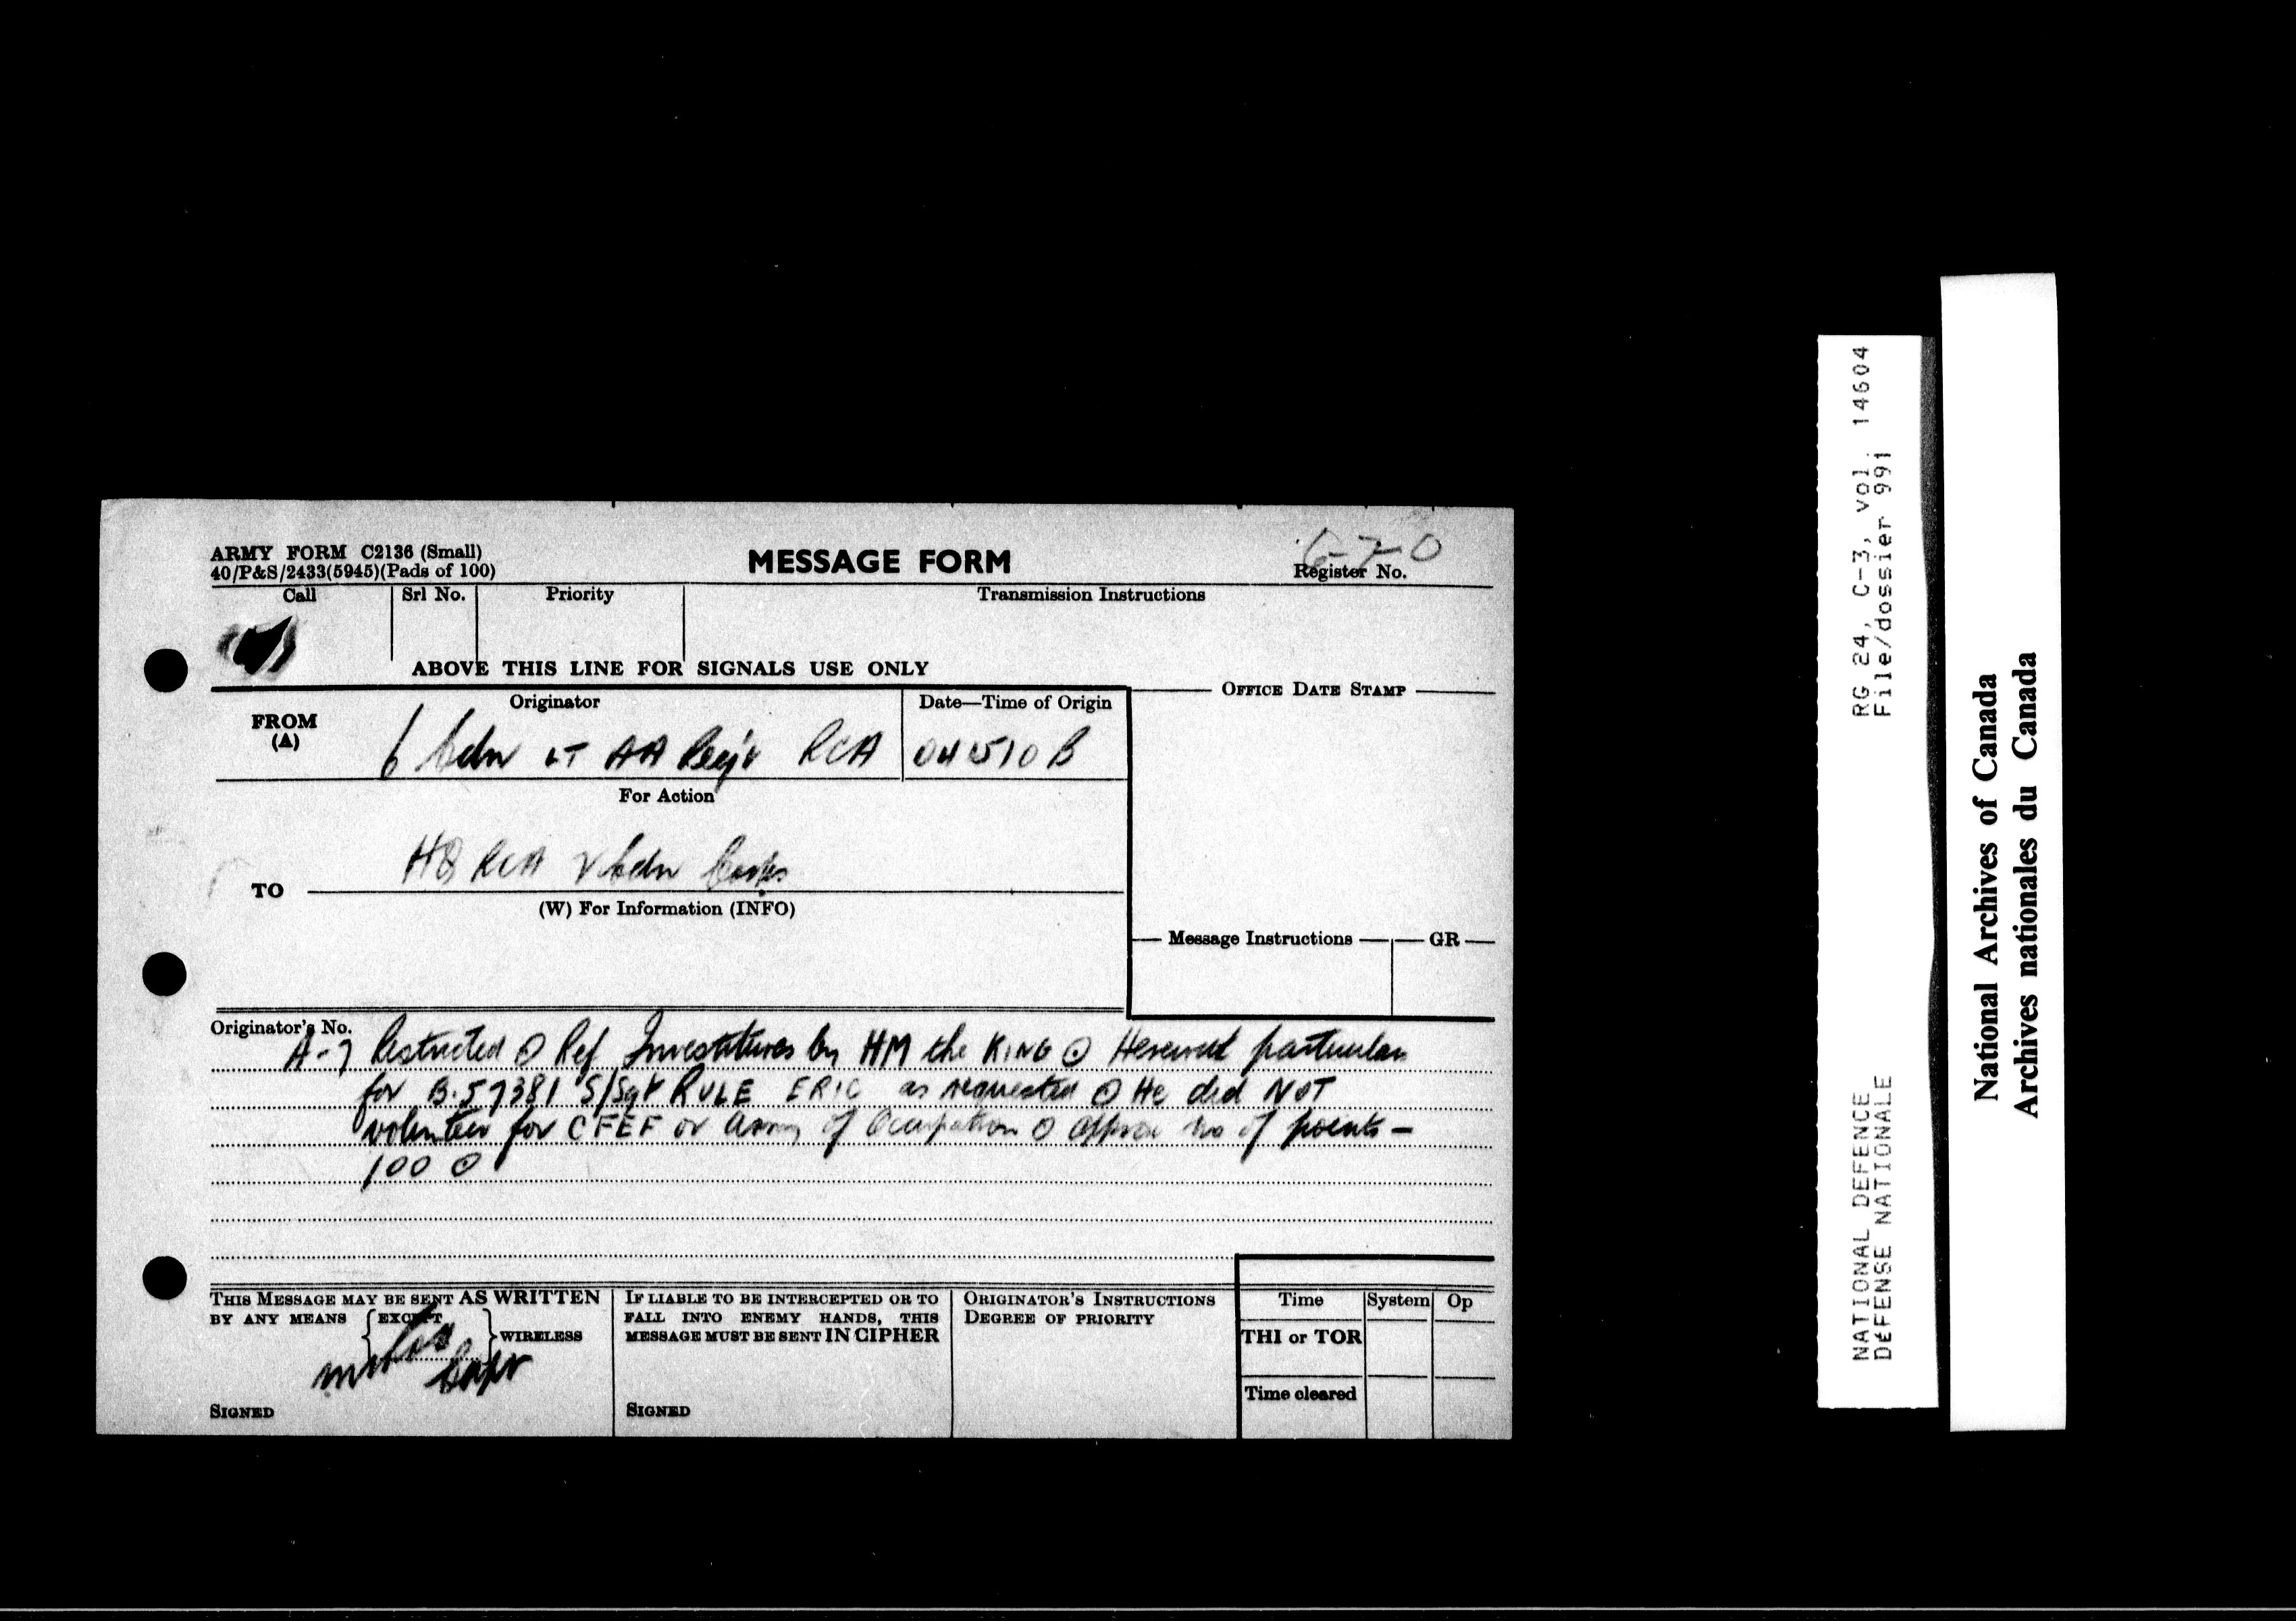 ARMY FORM C2136 (Small)
40/P&S/2433(5945)(Pads of 100)
MESSAGE FORM
6-7-0
Register No.
Call
Srl No.
Priority
Transmission Instructions
ABOVE THIS LINE FOR SIGNALS USE ONLY
FROM
(A)
Originator
6 Cdn LT AA Regt RCA
Date—Time of Origin
041510B
OFFICE DATE STAMP
For Action
TO
HQ RCA 2 Cdn Corps
(W) For Information (INFO)
Message Instructions
GR
Originator's No.
A-7 Restricted ⊙ Ref Investitures by HM the KING ⊙ Herewith particulars
for B.57381 S/Sgt RULE ERIC as requested ⊙ He did NOT
volunteer for CFEF or Army of Occupation ⊙ Approx no of points —
100 ⊙
THIS MESSAGE MAY BE SENT AS WRITTEN
BY ANY MEANS {EXCEPT} WIRELESS
Capt
SIGNED
IF LIABLE TO BE INTERCEPTED OR TO
FALL INTO ENEMY HANDS, THIS
MESSAGE MUST BE SENT IN CIPHER
SIGNED
ORIGINATOR'S INSTRUCTIONS
DEGREE OF PRIORITY
Time
System
Op
THI or TOR
Time cleared
RG 24, C-3, vol. 14604
File/dossier 991
NATIONAL DEFENCE
DEFENSE NATIONALE
National Archives of Canada
Archives nationales du Canada